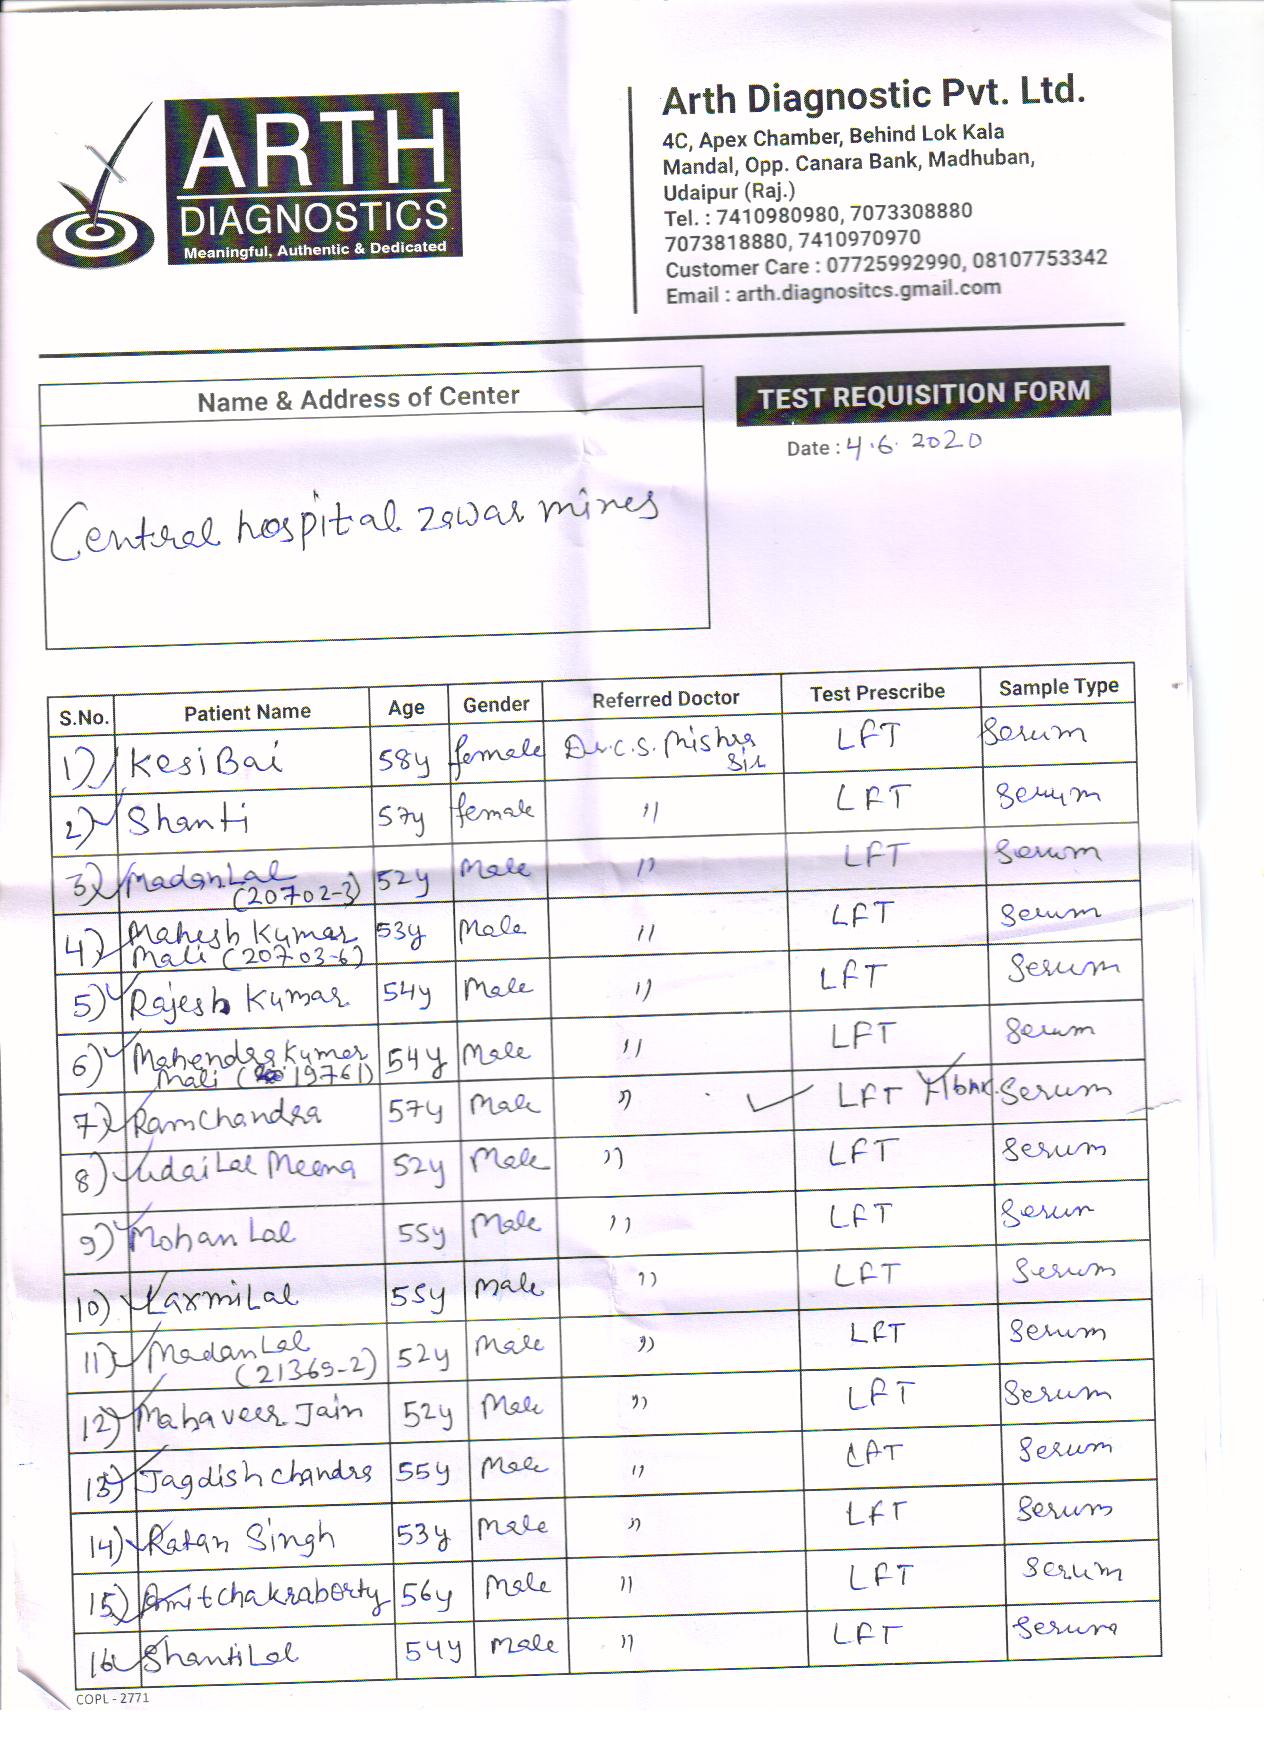 ARTH
DIAGNOSTICS
Meaningful, Authentic & Dedicated
Arth Diagnostic Pvt. Ltd.
4C, Apex Chamber, Behind Lok Kala
Mandal, Opp. Canara Bank, Madhuban,
Udaipur (Raj.)
Tel. : 7410980980, 7073308880
7073818880, 7410970970
Customer Care : 07725992990, 08107753342
Email : arth.diagnositcs.gmail.com
Name & Address of Center
Central hospital zawar mines
TEST REQUISITION FORM
Date : 4.6.2020
S.No. Patient Name Age Gender Referred Doctor Test Prescribe Sample Type
1) Kesi Bai 58y female Dr. C.S. Mishra Sir LFT Serum
2) Shanti 57y female " LFT Serum
3) Madan Lal (20702-3) 52y Male " LFT Serum
4) Mahesh Kumar Mali (20703-6) 53y Male " LFT Serum
5) Rajesh Kumar 54y Male " LFT Serum
6) Mahendra Kumar Mali (19761) 54y Male " LFT Serum
7) Ram Chandra 57y Male " LFT Serum
8) Udai Lal Meena 52y Male " LFT Serum
9) Mohan Lal 55y Male " LFT Serum
10) Laxmi Lal 55y Male " LFT Serum
11) Madan Lal (21369-2) 52y Male " LFT Serum
12) Mahaveer Jain 52y Male " LFT Serum
13) Jagdish Chandra 55y Male " LFT Serum
14) Ratan Singh 53y Male " LFT Serum
15) Amit Chakraborty 56y Male " LFT Serum
16 Shanti Lal 54y Male " LFT Serum
COPL - 2771